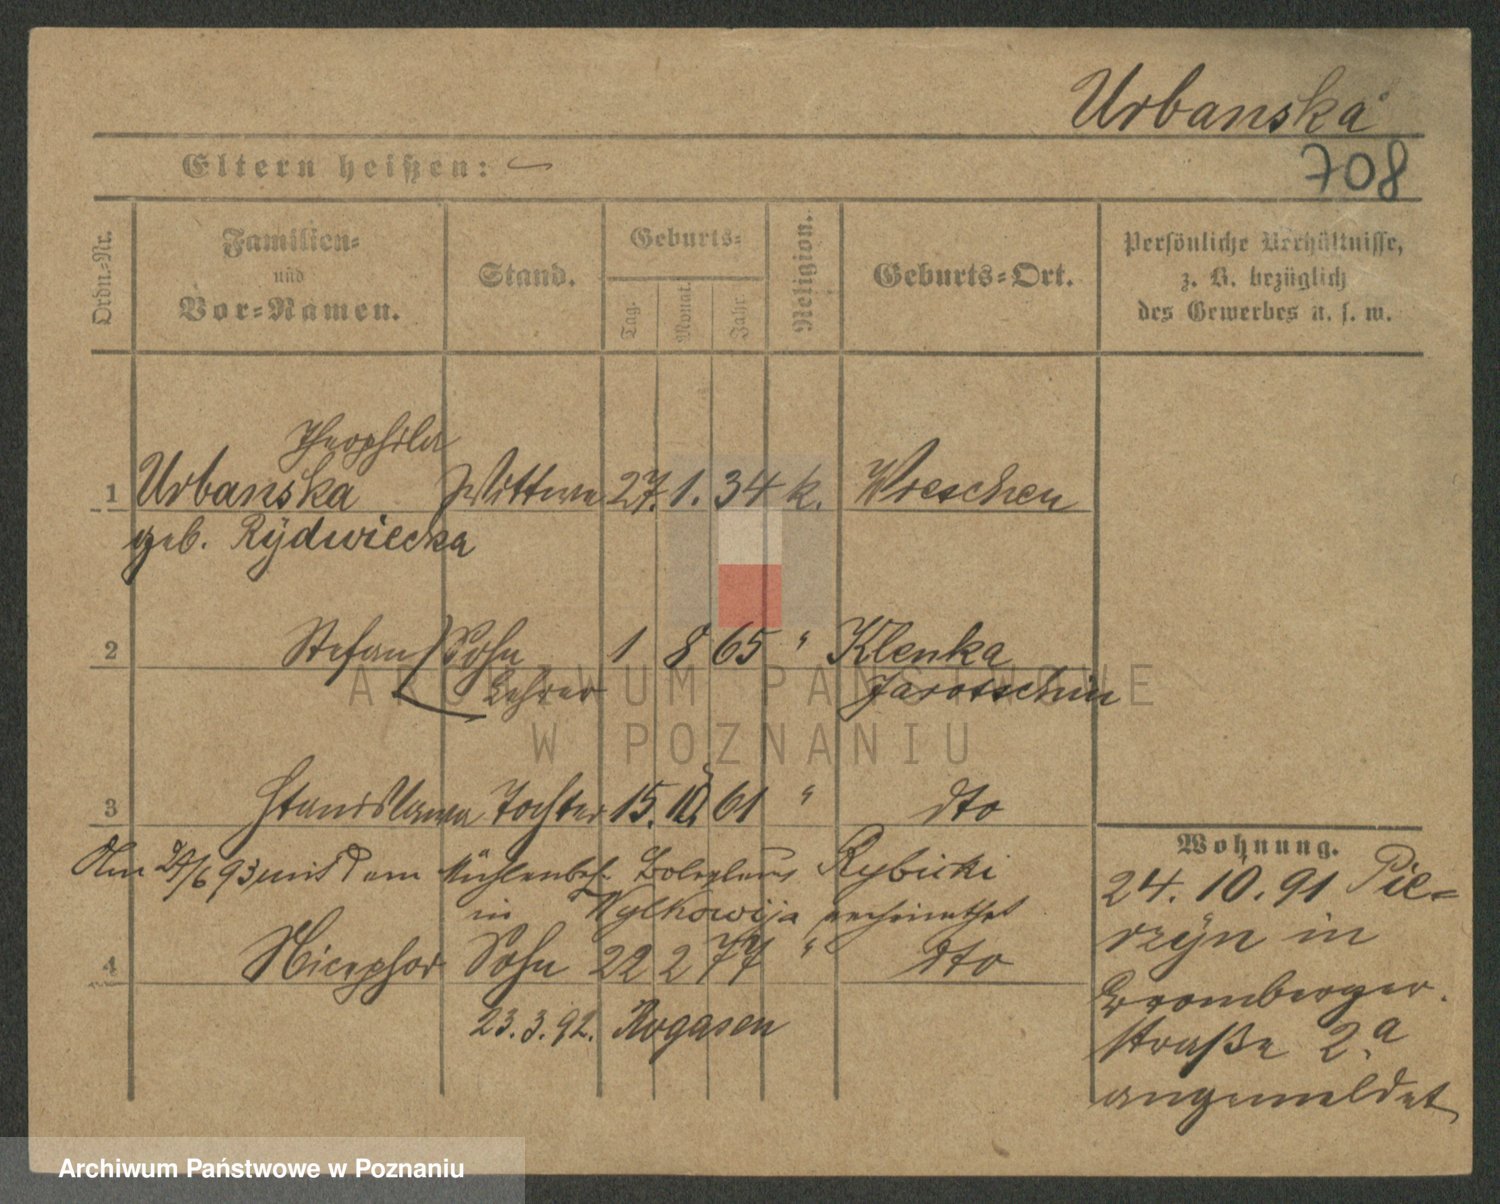 Urbanska
708
Eltern heißen: —
Ordn.-Nr.
Familien-
und
Vor-Namen.
Stand.
Geburts-
Tag.
Monat.
Jahr
Religion.
Geburts-Ort.
Persönliche Verhältnisse,
z. B. bezüglich
des Gewerbes u. s. w.
Theophila
1 Urbanska Wittwe 27. 1. 34 k. Wreschen
geb. Rÿdwiecka
2 Stefan Sohn 1 8 65 " Klenka
Lehrer Jarotschin
3 Stanislawa Tochter 15. 10. 61 " dto
Am 24/6 93 mit dem Mühlenbes. Boleslaus Rybicki
in verheirathet
4 Nicephor Sohn 22 2 77 " dto
23. 3. 92. Rogasen
Wohnung.
24. 10. 91 Pie-
rzÿn in
Bromberger-
straße 2.a
angemeldet
ARCHIWUM PAŃSTWOWE
W POZNANIU
Archiwum Państwowe w Poznaniu